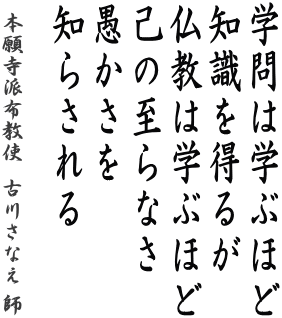 学問は学ぶほど
知識を得るが
仏教は学ぶほど
己の至らなさ
愚かさを
知らされる
本願寺派布教使 古川さなえ師